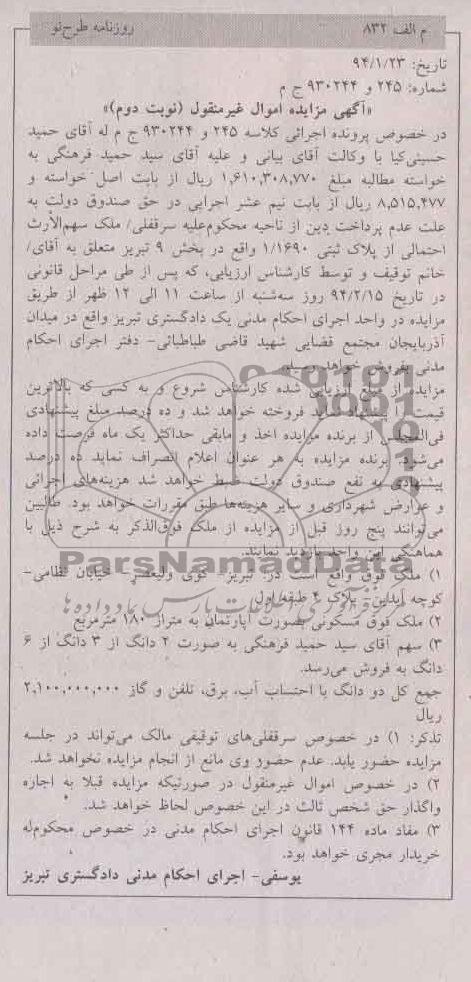 م الف ۸۳۲
روزنامه طرح‌نو
تاریخ: ۹۴/۱/۲۳
شماره: ۲۴۵ و ۹۳۰۲۴۴ ج م
«آگهی مزایده اموال غیرمنقول (نوبت دوم)»
در خصوص پرونده اجرائی کلاسه ۲۴۵ و ۹۳۰۲۴۴ ج م له آقای حمید
حسینی‌کیا با وکالت آقای بیانی و علیه آقای سید حمید فرهنگی به
خواسته مطالبه مبلغ ۱,۶۱۰,۳۰۸,۷۷۰ ریال از بابت اصل خواسته و
۸,۵۱۵,۴۷۷ ریال از بابت نیم عشر اجرایی در حق صندوق دولت به
علت عدم پرداخت دین از ناحیه محکوم‌علیه سرقفلی/ ملک سهم‌الارث
احتمالی از پلاک ثبتی ۱/۱۶۹۰ واقع در بخش ۹ تبریز متعلق به آقای/
خانم توقیف و توسط کارشناس ارزیابی، که پس از طی مراحل قانونی
در تاریخ ۹۴/۲/۱۵ روز سه‌شنبه از ساعت ۱۱ الی ۱۲ ظهر از طریق
مزایده در واحد اجرای احکام مدنی یک دادگستری تبریز واقع در میدان
آذربایجان مجتمع قضایی شهید قاضی طباطبائی- دفتر اجرای احکام
مدنی بفروش خواهد رسید.
مزایده از مبلغ ارزیابی شده کارشناس شروع و به کسی که بالاترین
قیمت را پیشنهاد نماید فروخته خواهد شد و ده درصد مبلغ پیشنهادی
فی‌المجلس از برنده مزایده اخذ و مابقی حداکثر یک ماه فرصت داده
می‌شود. برنده مزایده به هر عنوان اعلام انصراف نماید ده درصد
پیشنهادی به نفع صندوق دولت ضبط خواهد شد هزینه‌های اجرائی
و عوارض شهرداری و سایر هزینه‌ها طبق مقررات خواهد بود. طالبین
می‌توانند پنج روز قبل از مزایده از ملک فوق‌الذکر به شرح ذیل با
هماهنگی این واحد بازدید نمایند.
۱) ملک فوق واقع است در: تبریز- کوی ولیعصر- خیابان نظامی-
کوچه آیدین- پلاک ۴ طبقه اول
۲) ملک فوق مسکونی بصورت آپارتمان به متراژ ۱۸۰ مترمربع
۳) سهم آقای سید حمید فرهنگی به صورت ۲ دانگ از ۳ دانگ از ۶
دانگ به فروش می‌رسد.
جمع کل دو دانگ با احتساب آب، برق، تلفن و گاز ۲,۱۰۰,۰۰۰,۰۰۰
ریال
تذکر: ۱) در خصوص سرقفلی‌های توقیفی مالک می‌تواند در جلسه
مزایده حضور یابد. عدم حضور وی مانع از انجام مزایده نخواهد شد.
۲) در خصوص اموال غیرمنقول در صورتیکه مزایده قبلا به اجاره
واگذار حق شخص ثالث در این خصوص لحاظ خواهد شد.
۳) مفاد ماده ۱۴۴ قانون اجرای احکام مدنی در خصوص محکوم‌له
خریدار مجری خواهد بود.
یوسفی- اجرای احکام مدنی دادگستری تبریز
ParsNamadData